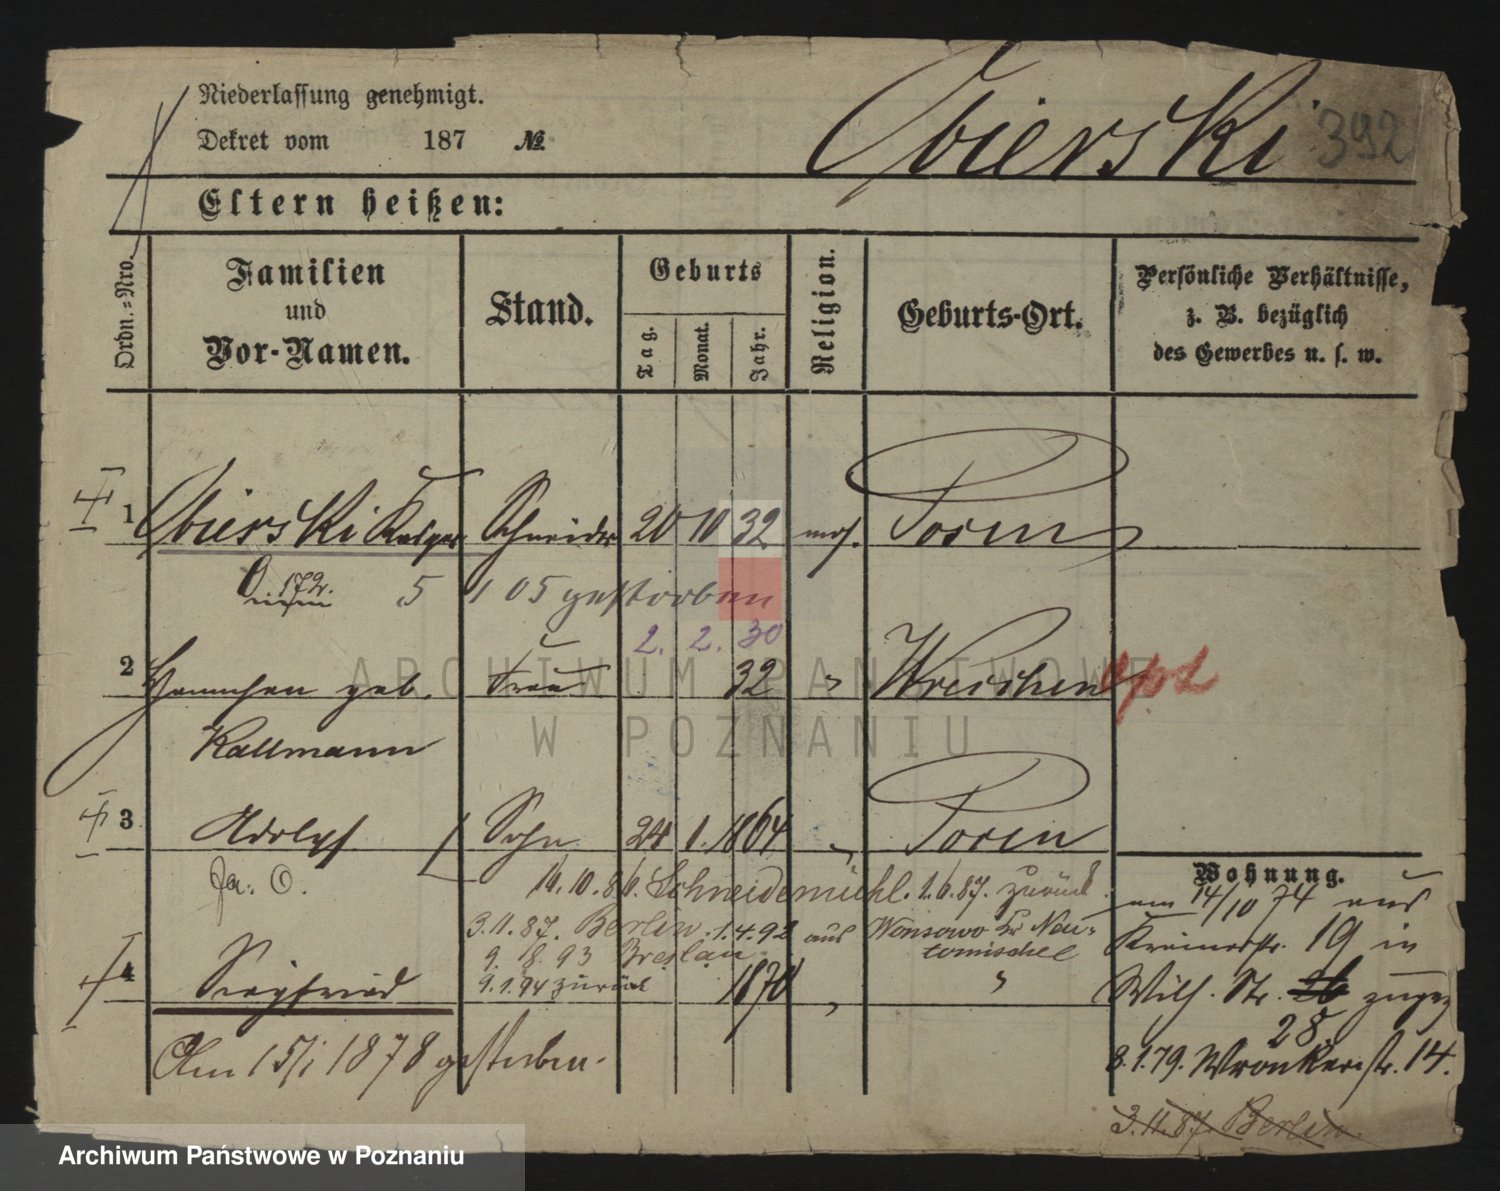 Niederlassung genehmigt.
Dekret vom 187 №
Obierski 392
Eltern heißen:
Ordn.-Nro.
Familien und Vor-Namen.
Stand.
Geburts
Tag. Monat. Jahr.
Religion.
Geburts-Ort.
Persönliche Verhältnisse,
z. B. bezüglich
des Gewerbes u. s. w.
1 Obierski Kasper Schneider 20 10 32 mos. Posen
5 1 05 gestorben
2. 2. 30
2 Hannchen geb. Frau 32 " Wreschen
Kallmann
3 Adolph Sohn 24 1. 1864 " Posen
Wohnung.
14.10.86. Schneidemühl. 1.6.87. zurück
am 14/10 74 aus
3.11.87. Berlin. 1.4.92 aus Wonsowo Kr Neu-
tomischel
19 in
9. 8. 93 Breslau
4 Siegfried 1870 " "
9.1.94 zurück
Wilh. Str. 26 zugez
28.
Am 15/1 1878 gestorben.
8.1.79. Wronkerstr. 14.
3.11.87. Berlin.
ARCHIWUM PAŃSTWOWE
W POZNANIU
Archiwum Państwowe w Poznaniu